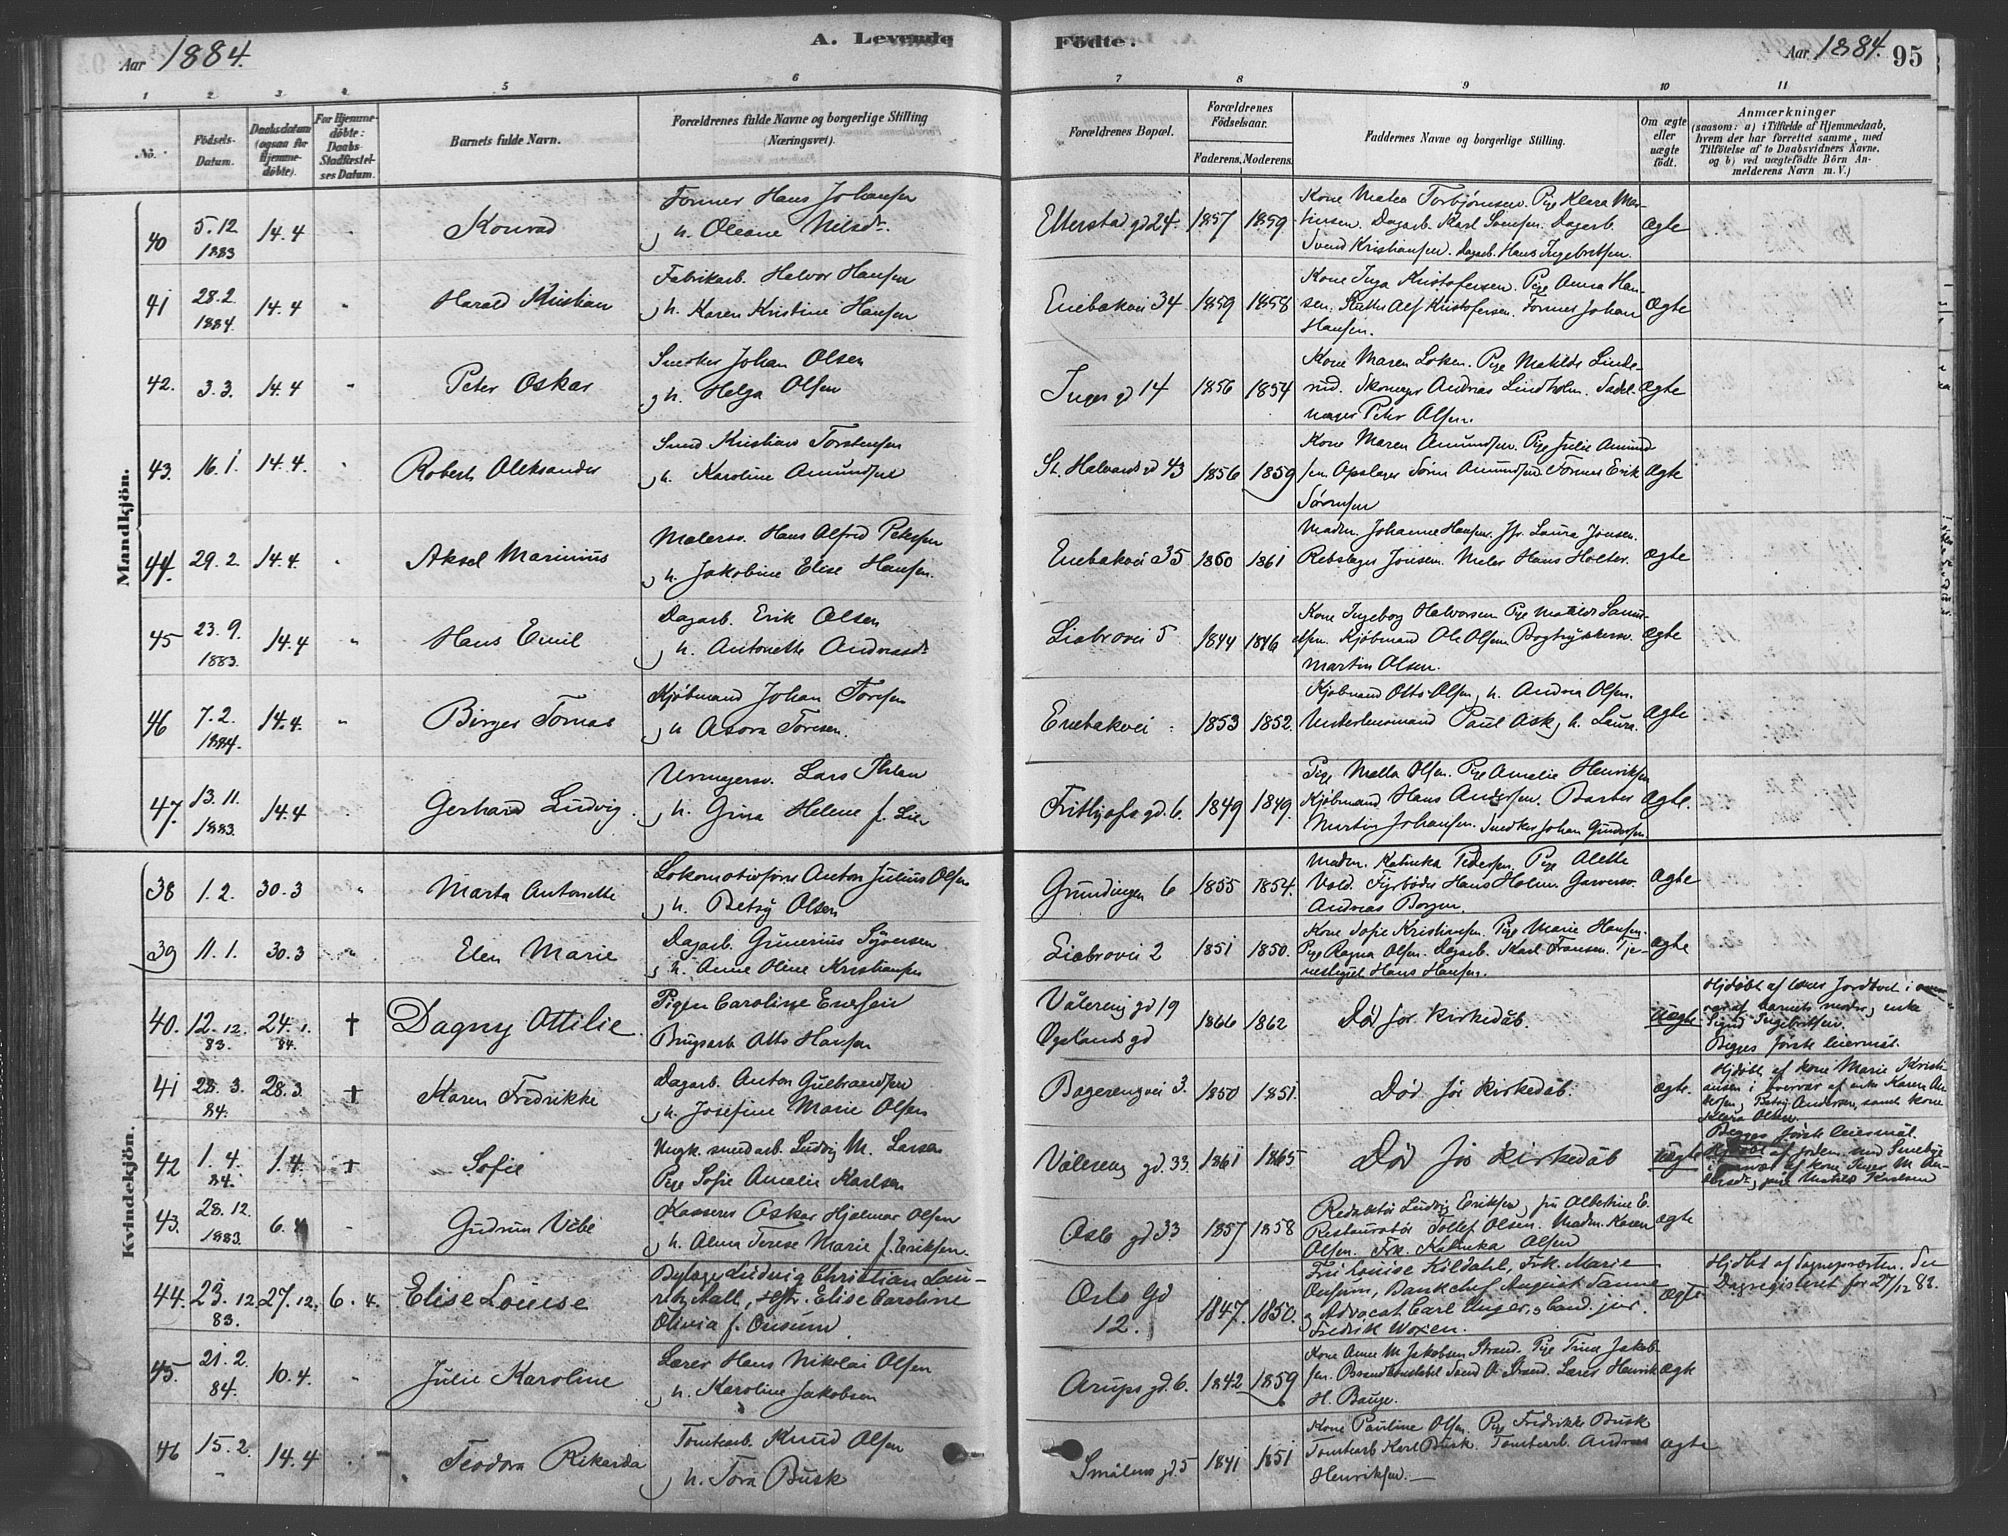 Aar 1884.
A. Levende
Födte.
Aar 1884. 95
1 2 3 4 5 6
7 8 9 10 11
No. Födsels-Datum. Daabsdatum (ogsaa for Hjemmedöbte). For Hjemmedöbte: Daabs-Stadfæstelses Datum. Barnets fulde Navn. Forældrenes fulde Navne og borgerlige Stilling (Næringsvei).
Forældrenes Bopæl. Forældrenes Födselsaar. Faderens. Moderens. Faddernes Navne og borgerlige Stilling. Om ægte eller uægte födt. Anmærkninger (saasom: a) i Tilfælde af Hjemmedaab, hvem der har forrettet samme, med Tilföielse af to Daabsvidners Navne, og b) ved uægtefödte Börn Anmelderens Navn m. V.)
Mandkjön.
40 5.12 1883 14.4 Konrad Former Hans Johansen
og h. Oleane Nilsdr.
Etterstad gd 24. 1857 1859 Kone Matea Torbjørnsen. Pige Klara Mar-
tinsen. Dagarb. Karl Svensen. Dagarb. Ægte
Svend Kristiansen. Dagarb. Hans Ingebretsen.
41 28.2. 1884. 14.4 Harald Kristian Fabrikarb. Halvor Hansen
og h. Karen Kristine Hansen
Enebakvei 34 1859 1858 Kone Inga Kristofersen. Pige Anna Han-
sen. Alf Kristofersen. Former Johan Ægte
Hansen.
42. 3.3. 14.4 Peter Oskar Snedker Johan Olsen
og h. Helga Olsen
Inges gd 14 1856 1854 Kone Maren Loken. Pige Matilde Linde-
rud. Skomager Andreas Lindholm. Sadel- Ægte
mager Peter Olsen.
43. 16.1. 14.4. Robert Aleksander Smed Kristian Torstensen
og h. Karoline Amundsen
St. Halvards gd 43 1856 1859 Kone Maren Amundsen. Pige Julie Amund
sen. Opslager Amundsen. Former Erik Ægte
Sörensen
44. 29.2. 14.4. Aksel Marinius Malersv. Hans Alfred Petersen
og h. Jakobine Elise Hansen.
Enebakvei 35 1860 1861 Madm. Johanne Hansen. Jfr. Laura Jonsen.
Rebslager Jonsen. Maler Hans Holter. Ægte
45 23.9. 1883. 14.4 Hans Emil Dagarb. Erik Olsen
og h. Antonette Andreasdr
Liabrovei 5 1844 1846 Kone Ingeborg Halvorsen Pige Matilde Samu-
elsen. Kjöbmand Ole Olsen. Bogtrykkersv. Ægte
Martin Olsen.
46 7.2. 1884. 14.4. Birger Tomas Kjöbmand Johan Toresen
og h. Asora Toresen.
Enebakvei 1853 1852. Kjöbmand Otto Olsen, h. Andrea Olsen.
Underlensmand Paul Ask, h. Laura. Ægte
47. 13.11. 1883. 14.4 Gerhard Ludvig. Urmagersv. Lars
og h. Gina Helene f. Lier
Frithjofs gd. 6. 1849 1849. Pige Malla Olsen. Pige Amalie Henriksen
Kjöbmand Hans Andersen. Barber Ægte.
Martin Johansen. Snedker Johan Gundersen
Kvindekjön.
38 1.2. 30.3 Marta Antonette Lokomotivförer Anton Julius Olsen
og h. Betsy Olsen
Gründingen 6 1855 1854. Madm. Katinka Pedersen. Pige Alette
Vold. Fyrböder Hans Holm. Garversv. Ægte
Andreas Borgen.
39 11.1. 30.3 Elen Marie Dagarb. Gunerius Syversen
og h. Anne Oline Kristiansen
Liabrovei 2 1851 1850. Kone Sofie Kristiansen. Pige Marie Hansen.
Pige Ragna Olsen. Dagarb. Karl Fransen. Tje- ægte
nestegut Hans Hansen.
40. 12.12. 83. 24.1. 84. † Dagny Ottilie. Pigen Caroline Enersen
Brugsarb Otto Hansen
Vålereng gd 19
gd 1866 1862 Död för kirkedåb. uægte Hjdöbt af Jordbed i
af barnets moder, enke
Sigrid Ingebretsen.
Begges förste leiermål.
41 23.3. 84. 28.3. † Karen Fredrikke Dagarb. Anton Gulbrandsen
og h. Josefine Marie Olsen
Bagerengvei 3. 1850 1851. Död för kirkedåb. ægte. Hjdöbt af kone Marie Kristi-
ansen i overvær af enke Karen
Betsy Andersen, samt kone
Klara Olsen.
42 1.4. 84. 1.4. † Sofie Ungk. smedarb. Ludvig M. Larsen
Pige Sofie Amalie Karlsen
Vålereng gd. 33. 1861 1865 Död för kirkedåb uægte Begges förste leiermål.
af jordem.
i overvær af kone Inger M. An-
dersdr., pige Matilde Karlsen
43. 28.12. 1883. 6.4 Gudrun Vibe Kasserer Oskar Hjalmar Olsen
og h. Alma Terese Marie f. Eriksen.
Oslo gd 33 1857 1858 Redaktör Ludvig Eriksen, fru Albertine E.
Restauratör Tollef Olsen. Madm. Karen ægte
Olsen. Frk. Katinka Olsen
44. 23.12. 83. 27.12. 6.4. Elise Louise Byfoged Ludvig Christian Lau-
ritz Aall, Hstr. Elise Caroline
Olivia f. Onsum.
Oslo Gd
12. 1847. 1850. Fru Louise Kildahl, Frk. Marie
Onsum, Bankchef August Sanne
og Advocat Carl Unger, og Cand. jur. ægte
Fredrik Woxen.
Hjdöbt af Sognepræsten. Se
Dagregisteret for 27/12 83.
45. 21.2. 84. 10.4. Julie Karoline Lærer Hans Nikolai Olsen
og h. Karoline Jakobsen
Arups gd. 6. 1842 1859 Kone Anne M. Jakobsen Strand. Pige Trine Jakob-
sen. Brandkonstabel Strand. Lærer Henrik ægte
H. Bauge.
46 15.2. 14.4 Teodora Rikarda Tomtearb. Knud Olsen
og h. Tora Busk
Smålens gd. 5 1841 1851 Kone Pauline Olsen. Pige Fredrikke Busk
Tomtearb Karl Busk. Tomtearb. Andreas ægte
Henriksen.